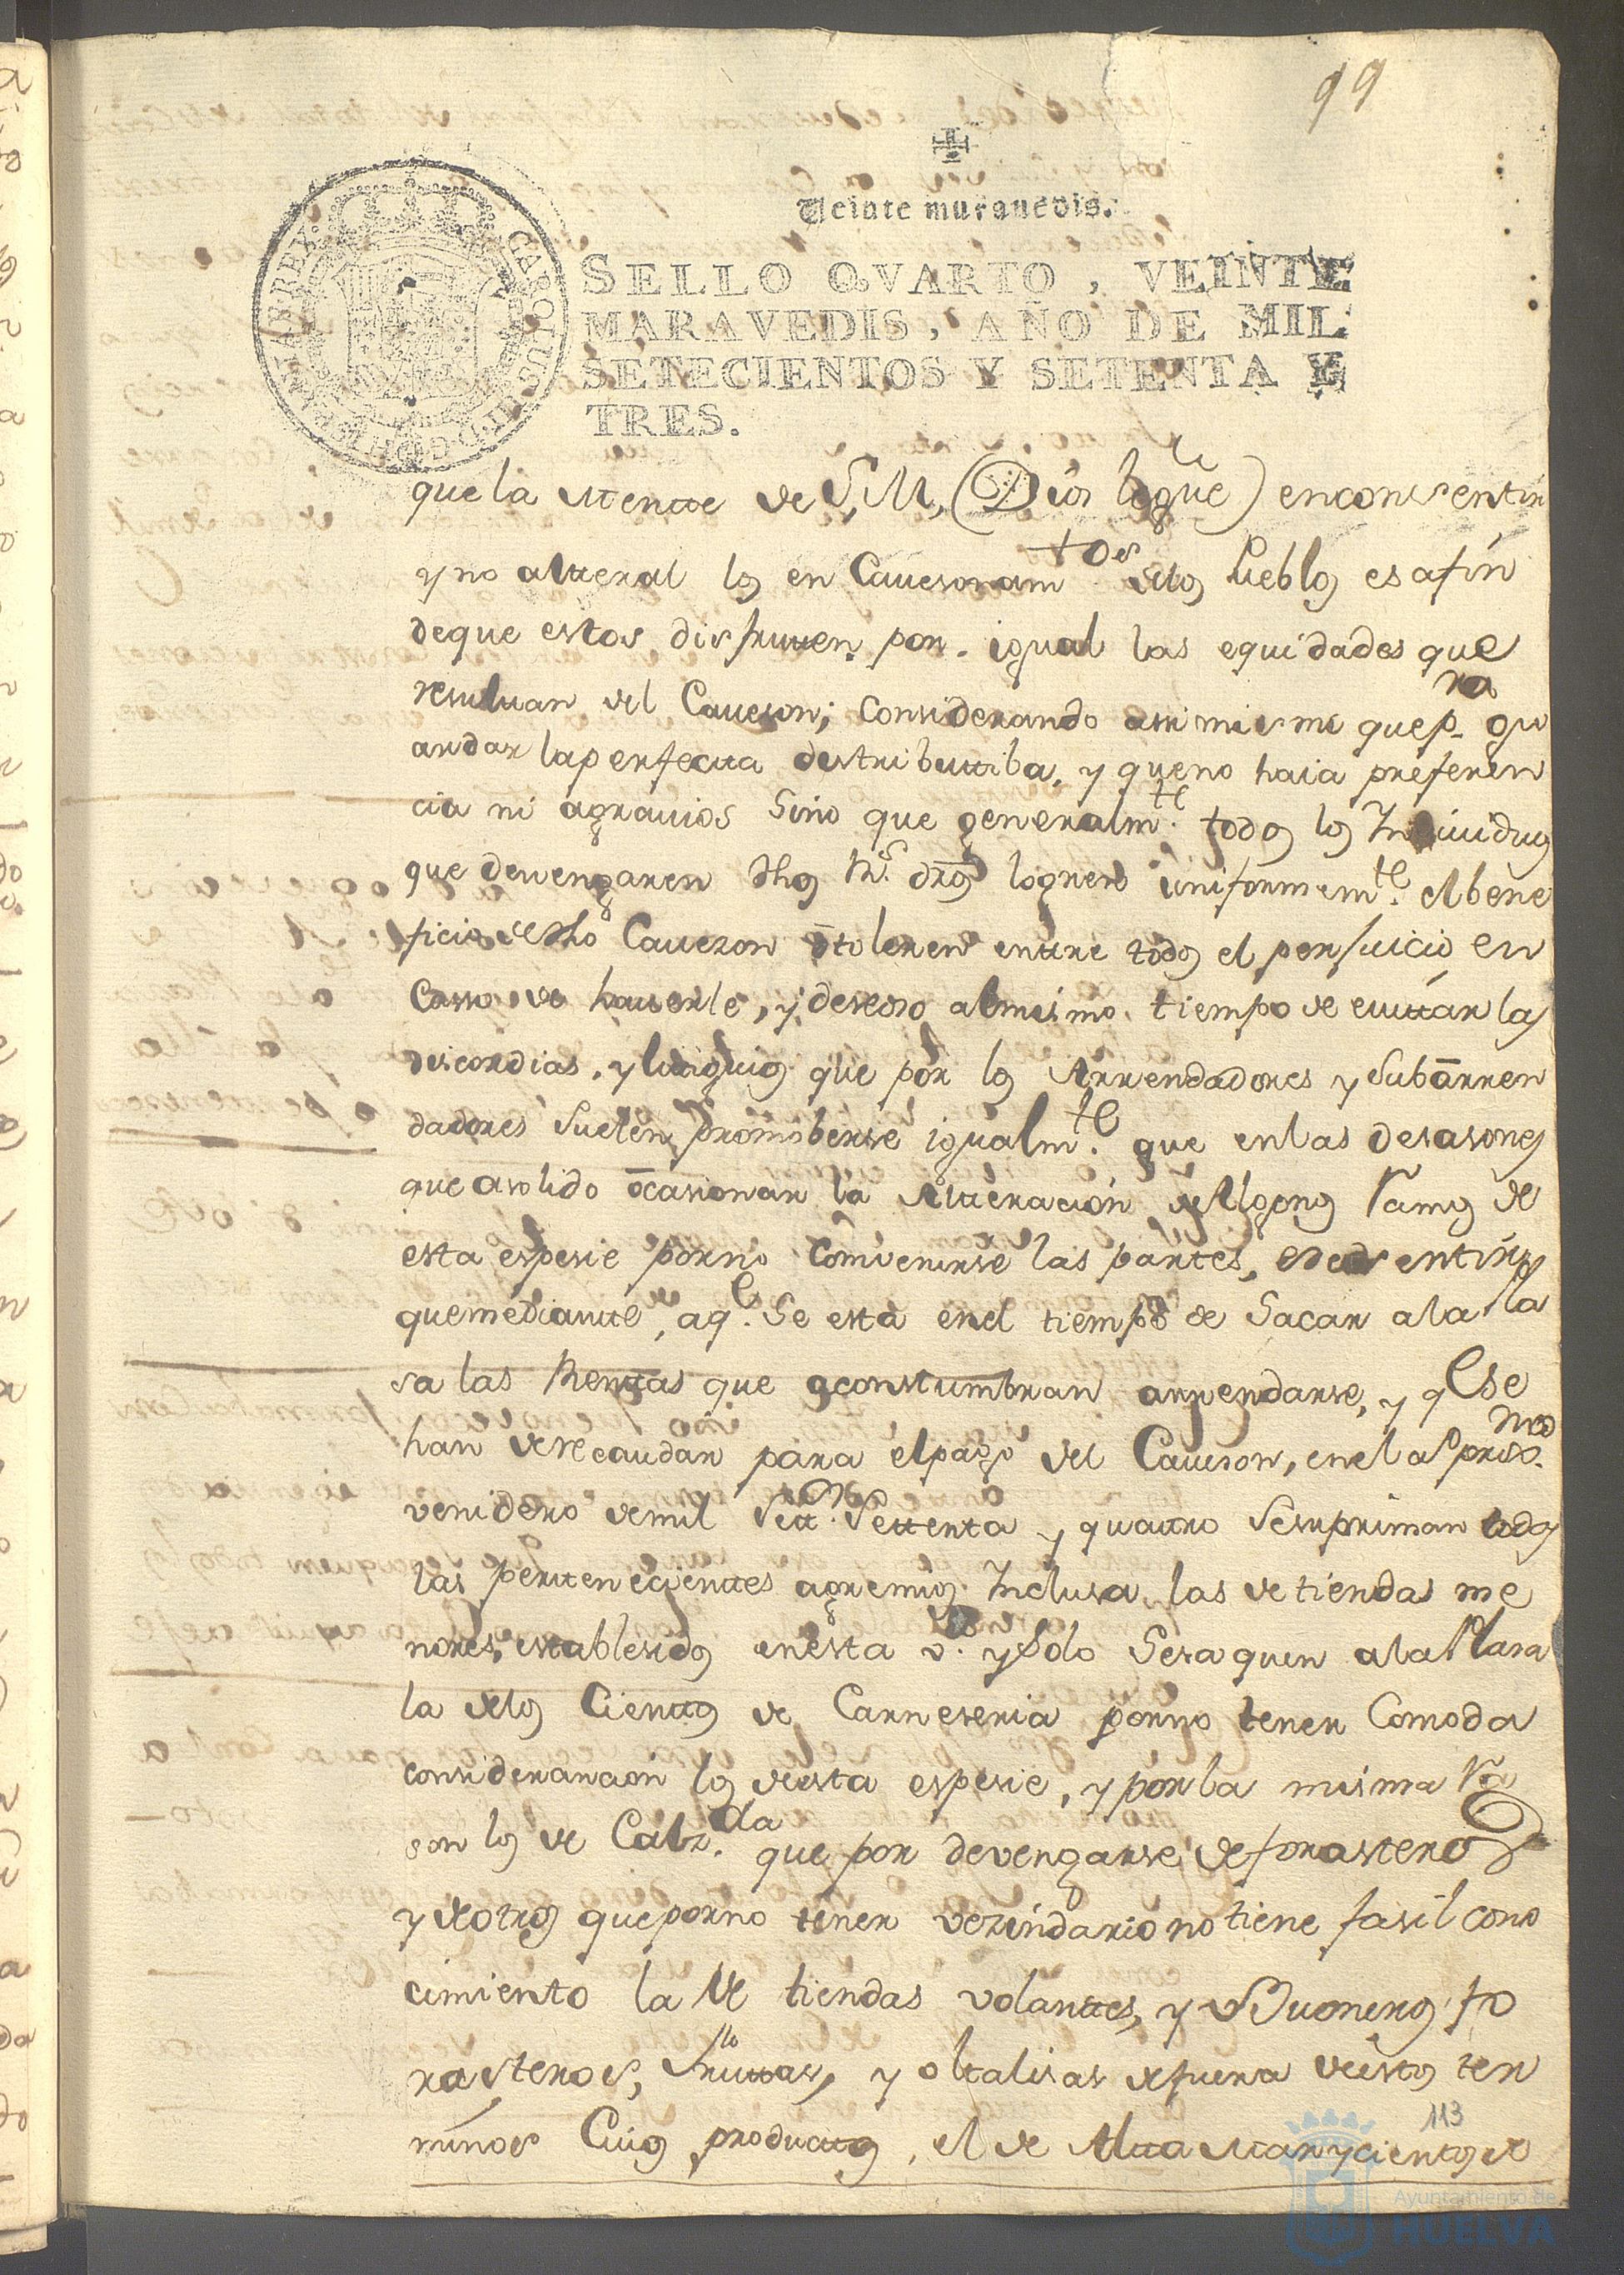 99
Veinte maravedis.
SELLO QVARTO, VEINTE
MARAVEDIS, AÑO DE MIL
SETECIENTOS Y SETENTA Y
TRES.
que la mente de S.M, (Dios le gue) en consentir
y no alterar los en Cauesonamtos delos Pueblos es afin
deque estos disfruten por igual las equidades que
resultan del Caueson; Considerando assi mismo que pra gu
ardar laperfecta destributtiba, y queno haia preferen
cia ni agrauios Sino que generalmte todos los Indiuiduos
que devengaren dhos Rs. dros logren uniformemte. el bene
ficio de dho Cauezon ô toleren entre todos el perjuicio en
Casso de hauerle, y deseoso almismo tiempo de euitar las
discordias, y litigios que por los Arrendadores y Subarren
dadores suelen promoberse igualmte. que en las desasones
que asolido ôcasionar la Alteracion de Algonos Ramos de
esta espesie porno comvenirse las partes, es de sentir
que mediante, aqe. Se està en el tiempo de Sacar ala Pla
sa las Rentas que aconstumbran arrendarse, y qe se
han de recaudar para elpago del Caueson, en el aº. proxmo.
venidero demil Settos. Settenta y quatro Sesupriman todas
las pertenecientes agremios Inclusa las de tiendas me
nores, establesidos en esta va. y Solo Sesaquen ala Plasa
la delos Cientos de Carneseria porno tener Comoda
considerancion los deesta espesie, y porla misma Ra
son los de Calzda. que por devengarse de forasteros
y deotros queporno tener vezindario no tiene fasil cono
cimiento la de tiendas volantes, y de Buoneros fo
rasteros, fruttas, y oltalisas defuera deestos ter
minos Cuios productos, el de Alta Mar y cientos de
113
Ayuntamiento de
HUELVA